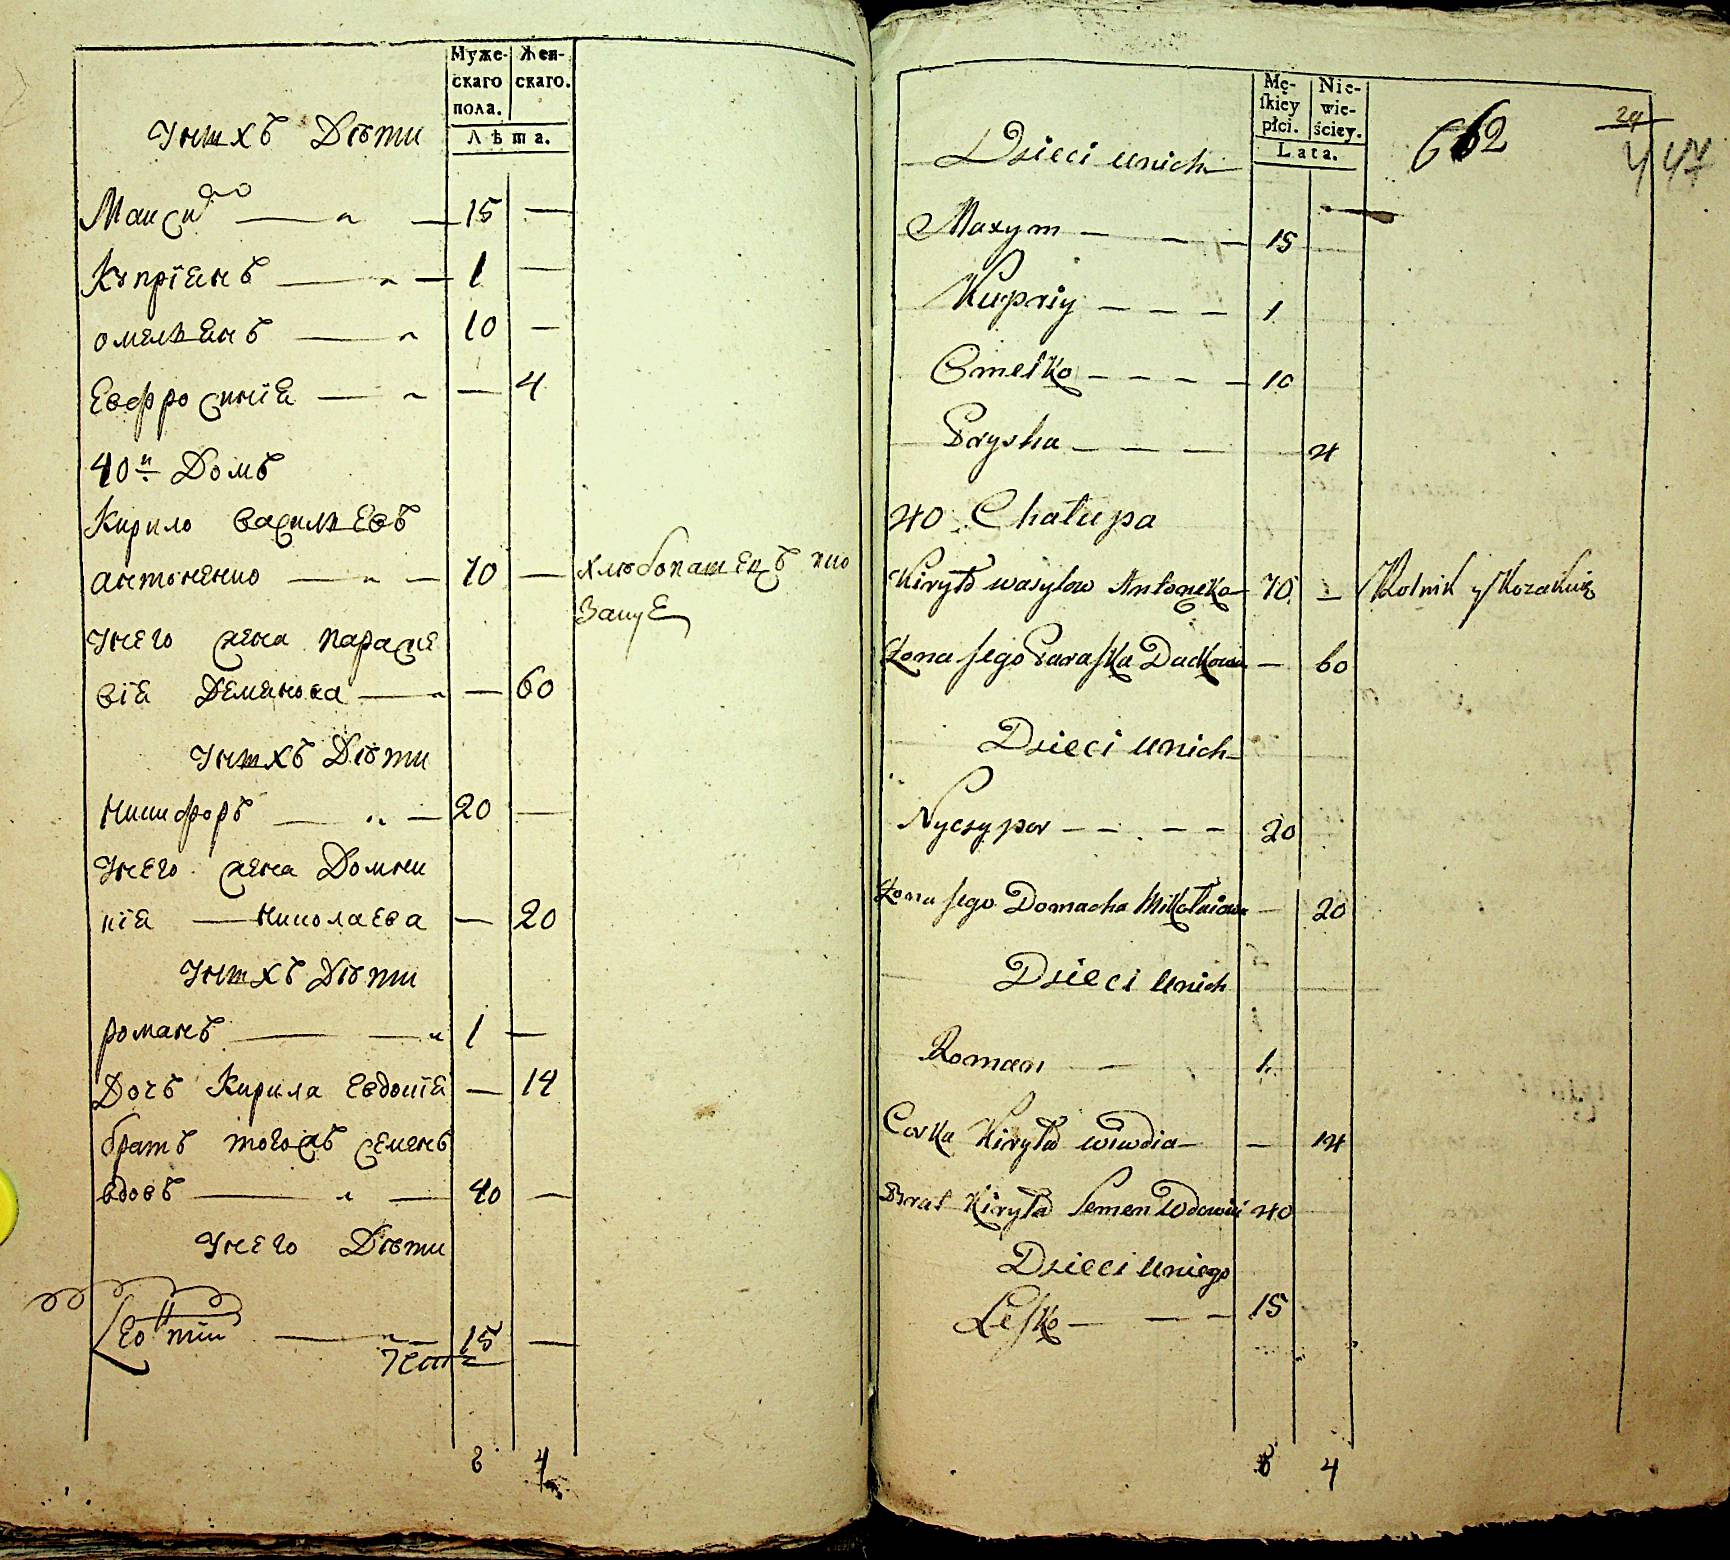 Муже-
скаго
пола.
Жен-
скаго.
Лѣта.
Унихъ Дѣти
Максим 15 —
Купріянъ — 1 —
омелянъ — 10 —
Евфросинія — — 4
40й Домъ
Кирило василиевъ
антоненко — 70 — хлюбопашецъ
Унего жена параске
вія Демянова — — 60
Унихъ Дѣти
Никифоръ — 20 —
Унего жена Домни
кія — Николаева — 20
Унихъ Дѣти
романъ — 1 —
Дочъ Кирила Евдокія — 14
братъ тогожъ Семенъ
вдовъ — 40 —
Унего Дѣти
Леонтій — 15 —
8 4
Mę-
ſkiey
płci.
Nie-
wie-
ściey.
Lata.
662
24
47
Dzieci unich
Maxym — — — 15
Kupriy — — — 1
Omelko — — — — 10
Pryska — — — 4
40 Chałupa
Kiryło wasylow Antonenko 70 — Rolnik y Kozakuie
Żona jego Paraſka Dackowa — 60
Dzieci unich
Nyczypor — — — — 20
Żona jego Domacha Mikołaiowa — 20
Dzieci unich
Roman — 1
Corka Kiryła wiwdia — — 14
Brat Kiryła Semen Wdowiec 40
Dzieci uniego
Leſko — — — 15
8 4